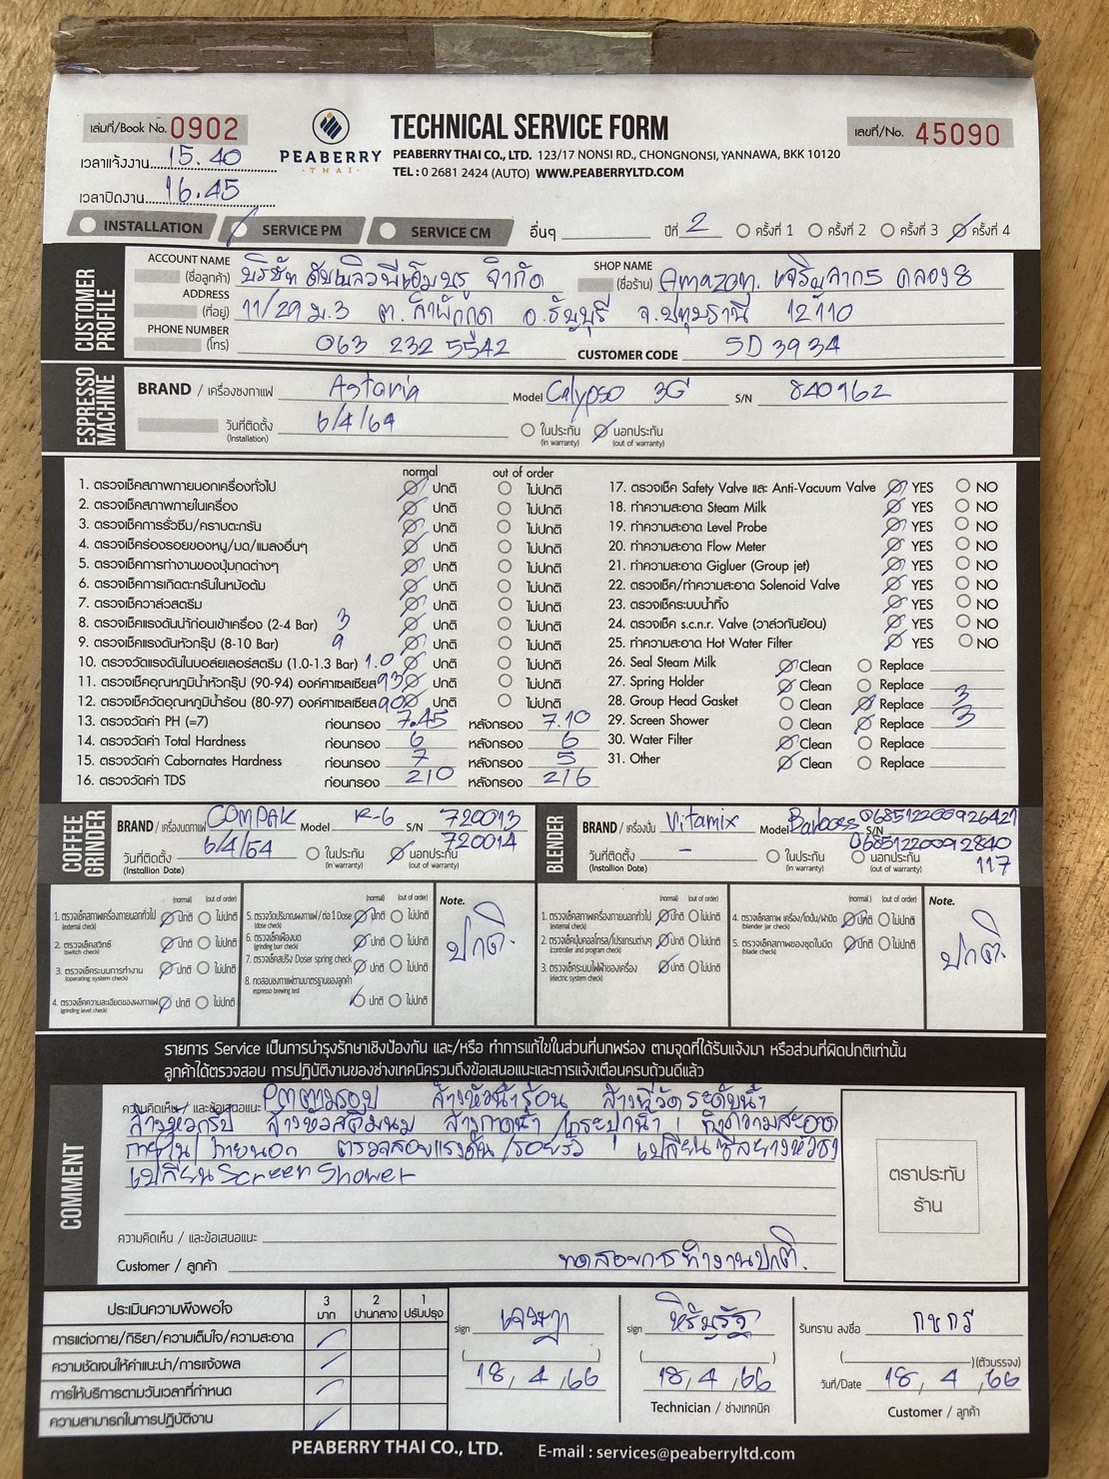 เล่มที่/Book No. 0902
PEABERRY
THAI
TECHNICAL SERVICE FORM
เลขที่/No. 45090
PEABERRY THAI CO., LTD. 123/17 NONSI RD., CHONGNONSI, YANNAWA, BKK 10120
TEL : 0 2681 2424 (AUTO) WWW.PEABERRYLTD.COM
เวลาแจ้งงาน 15.40
เวลาปิดงาน 16.45
INSTALLATION SERVICE PM SERVICE CM อื่นๆ ปีที่ 2 ครั้งที่ 1 ครั้งที่ 2 ครั้งที่ 3 ครั้งที่ 4
CUSTOMER PROFILE
ACCOUNT NAME (ชื่อลูกค้า) บริษัท ดับเบิลวีพีเอ็มบรู จำกัด SHOP NAME (ชื่อร้าน) Amazon. เจริญลาภ5 คลอง8
ADDRESS (ที่อยู่) 11/29 ม.3 ต.ลำผักกูด อ.ธัญบุรี จ.ปทุมธานี 12110
PHONE NUMBER (โทร) 063 232 5542 CUSTOMER CODE SD3934
ESPRESSO MACHINE
BRAND / เครื่องชงกาแฟ Astoria Model Calypso 3G S/N 840962
วันที่ติดตั้ง (Installation) 6/4/64 ในประกัน (in warranty) นอกประกัน (out of warranty)
normal out of order
1. ตรวจเช็คสภาพภายนอกเครื่องทั่วไป ปกติ ไม่ปกติ
2. ตรวจเช็คสภาพภายในเครื่อง ปกติ ไม่ปกติ
3. ตรวจเช็คการรั่วซึม/คราบตะกรัน ปกติ ไม่ปกติ
4. ตรวจเช็คร่องรอยของหนู/มด/แมลงอื่นๆ ปกติ ไม่ปกติ
5. ตรวจเช็คการทำงานของปุ่มกดต่างๆ ปกติ ไม่ปกติ
6. ตรวจเช็คการเกิดตะกรันในหม้อต้ม ปกติ ไม่ปกติ
7. ตรวจเช็ควาล์วสตรีม ปกติ ไม่ปกติ
8. ตรวจเช็คแรงดันน้ำก่อนเข้าเครื่อง (2-4 Bar) 3 ปกติ ไม่ปกติ
9. ตรวจเช็คแรงดันหัวกรุ๊ป (8-10 Bar) 9 ปกติ ไม่ปกติ
10. ตรวจวัดแรงดันในบอล์ยเลอร์สตรีม (1.0-1.3 Bar) 1.0 ปกติ ไม่ปกติ
11. ตรวจเช็คอุณหภูมิน้ำหัวกรุ๊ป (90-94) องศาเซลเซียส 93 ปกติ ไม่ปกติ
12. ตรวจเช็ควัดอุณหภูมิน้ำร้อน (80-97) องศาเซลเซียส 90 ปกติ ไม่ปกติ
13. ตรวจวัดค่า PH (=7) ก่อนกรอง 7.45 หลังกรอง 7.10
14. ตรวจวัดค่า Total Hardness ก่อนกรอง 6 หลังกรอง 6
15. ตรวจวัดค่า Cabornates Hardness ก่อนกรอง 7 หลังกรอง 5
16. ตรวจวัดค่า TDS ก่อนกรอง 210 หลังกรอง 216
17. ตรวจเช็ค Safety Valve และ Anti-Vacuum Valve YES NO
18. ทำความสะอาด Steam Milk YES NO
19. ทำความสะอาด Level Probe YES NO
20. ทำความสะอาด Flow Meter YES NO
21. ทำความสะอาด Gigluer (Group jet) YES NO
22. ตรวจเช็ค/ทำความสะอาด Solenoid Valve YES NO
23. ตรวจเช็คระบบน้ำทิ้ง YES NO
24. ตรวจเช็ค s.c.n.r. Valve (วาล์วกันย้อน) YES NO
25. ทำความสะอาด Hot Water Filter YES NO
26. Seal Steam Milk Clean Replace
27. Spring Holder Clean Replace
28. Group Head Gasket Clean Replace 3
29. Screen Shower Clean Replace 3
30. Water Filter Clean Replace
31. Other Clean Replace
COFFEE GRINDER
BRAND / เครื่องบดกาแฟ COMPAK Model R-6 S/N 720013
720014
วันที่ติดตั้ง (Installion Date) 6/4/64 ในประกัน (in warranty) นอกประกัน (out of warranty)
BLENDER
BRAND / เครื่องปั่น Vitamix Model S/N 068512200926421
06851220092840
117
วันที่ติดตั้ง (Installion Date) - ในประกัน (in warranty) นอกประกัน (out of warranty)
(normal) (out of order)
1. ตรวจเช็คสภาพเครื่องภายนอกทั่วไป (external check) ปกติ ไม่ปกติ
2. ตรวจเช็คสวิทช์ (switch check) ปกติ ไม่ปกติ
3. ตรวจเช็คระบบการทำงาน (operating system check) ปกติ ไม่ปกติ
4. ตรวจเช็คความละเอียดของผงกาแฟ (grinding level check) ปกติ ไม่ปกติ
(normal) (out of order)
5. ตรวจวัดปริมาณผงกาแฟ/ต่อ 1 Dose (dose check) ปกติ ไม่ปกติ
6. ตรวจเช็คเฟืองบด (grinding burr check) ปกติ ไม่ปกติ
7. ตรวจเช็คสปริง Doser spring check ปกติ ไม่ปกติ
8. ทดสอบชงกาแฟตามมาตรฐานของลูกค้า espresso brewing test ปกติ ไม่ปกติ
Note.
ปกติ.
(normal) (out of order)
1. ตรวจเช็คสภาพเครื่องภายนอกทั่วไป (external check) ปกติ ไม่ปกติ
2. ตรวจเช็คปุ่มคอลโทรล/โปรแกรมต่างๆ (controller and program check) ปกติ ไม่ปกติ
3. ตรวจเช็คระบบไฟฟ้าของเครื่อง (electric system check) ปกติ ไม่ปกติ
(normal) (out of order)
4. ตรวจเช็คสภาพ เครื่อง/โถปั่น/ฝาปิด (blender jar check) ปกติ ไม่ปกติ
5. ตรวจเช็คสภาพของชุดใบมีด (blade check) ปกติ ไม่ปกติ
Note.
ปกติ.
รายการ Service เป็นการบำรุงรักษาเชิงป้องกัน และ/หรือ ทำการแก้ไขในส่วนที่บกพร่อง ตามจุดที่ได้รับแจ้งมา หรือส่วนที่ผิดปกติเท่านั้น
ลูกค้าได้ตรวจสอบ การปฏิบัติงานของช่างเทคนิครวมถึงข้อเสนอแนะและการแจ้งเตือนครบถ้วนดีแล้ว
COMMENT
ความคิดเห็น / และข้อเสนอแนะ PMตามรอบ ล้างหัวน้ำร้อน ล้างที่วัดระดับน้ำ
ล้างหัวกรุ๊ป ล้างหัวสตีมนม ล้างถาดน้ำ/กระปุกน้ำทิ้ง ทำความสะอาด
ภายใน/ภายนอก ตรวจสอบแรงดัน/รอยรั่ว เปลี่ยนซีลยางหัวชง
เปลี่ยน Screen Shower
ความคิดเห็น / และข้อเสนอแนะ
Customer / ลูกค้า ทดสอบการทำงานปกติ.
ตราประทับ
ร้าน
ประเมินความพึงพอใจ 3 มาก 2 ปานกลาง 1 ปรับปรุง
การแต่งกาย/กิริยา/ความเต็มใจ/ความสะอาด
ความชัดเจนให้คำแนะนำ/การแจ้งผล
การให้บริการตามวันเวลาที่กำหนด
ความสามารถในการปฏิบัติงาน
sign เจษฎา
18, 4, 66
sign หิรัญรัฐ
18, 4, 66
Technician / ช่างเทคนิค
รับทราบ ลงชื่อ กชกร
(ตัวบรรจง)
วันที่/Date 18, 4, 66
Customer / ลูกค้า
PEABERRY THAI CO., LTD. E-mail : services@peaberryltd.com